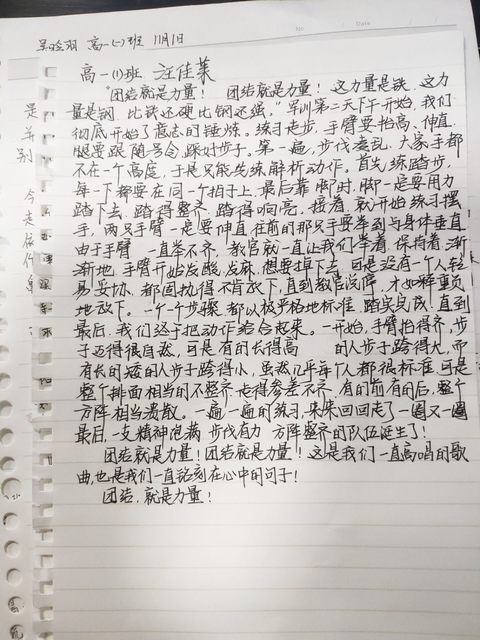 高一(一)班 11月1日
高一(1)班 汪佳莱
"团结就是力量! 团结就是力量! 这力量是铁,这力
量是钢,比铁还硬比钢还强,"军训第二天下午开始,我们
彻底开始了意志的锤炼。练习走步,手臂要抬高、伸直,
腿要跟随号令,踩好步子。第一遍,步伐凌乱,大家手都
不在一个高度,于是只能先练解析动作。首先练踏步,
每一下都要在同一个拍子上,最后靠脚时,脚一定要用力
踏下去,踏得整齐,踏得响亮,接着,就开始练习摆
手,两只手臂一定要伸直在前的那只手要举到与身体垂直
由于手臂一直举不齐,教官就一直让我们举着,保持着,渐
渐地,手臂开始发酸,发麻,想要掉下去,可是没有一个人轻
易妥协,都固执得不肯放下,直到教官说停,才如释重负
地放下。一个个步骤,都以极严格地标准,踏实完成,直到
最后,我们终于把动作结合起来。一开始,手臂抬得齐,步
子迈得很自然,可是有的长得高 的人步子跨得大,而
有长的矮的人步子跨得小,虽然几乎每个人都很标准,可是
整个排面相当的不整齐,走得参差不齐,有的前有的后,整个
方阵相当涣散。一遍一遍的练习,来来回回走了一圈又一圈
最后,一支精神饱满,步伐有力,方阵整齐的队伍诞生了!
团结就是力量!团结就是力量!这是我们一直高唱的歌
曲,也是我们一直铭刻在心中的句子!
团结,就是力量!